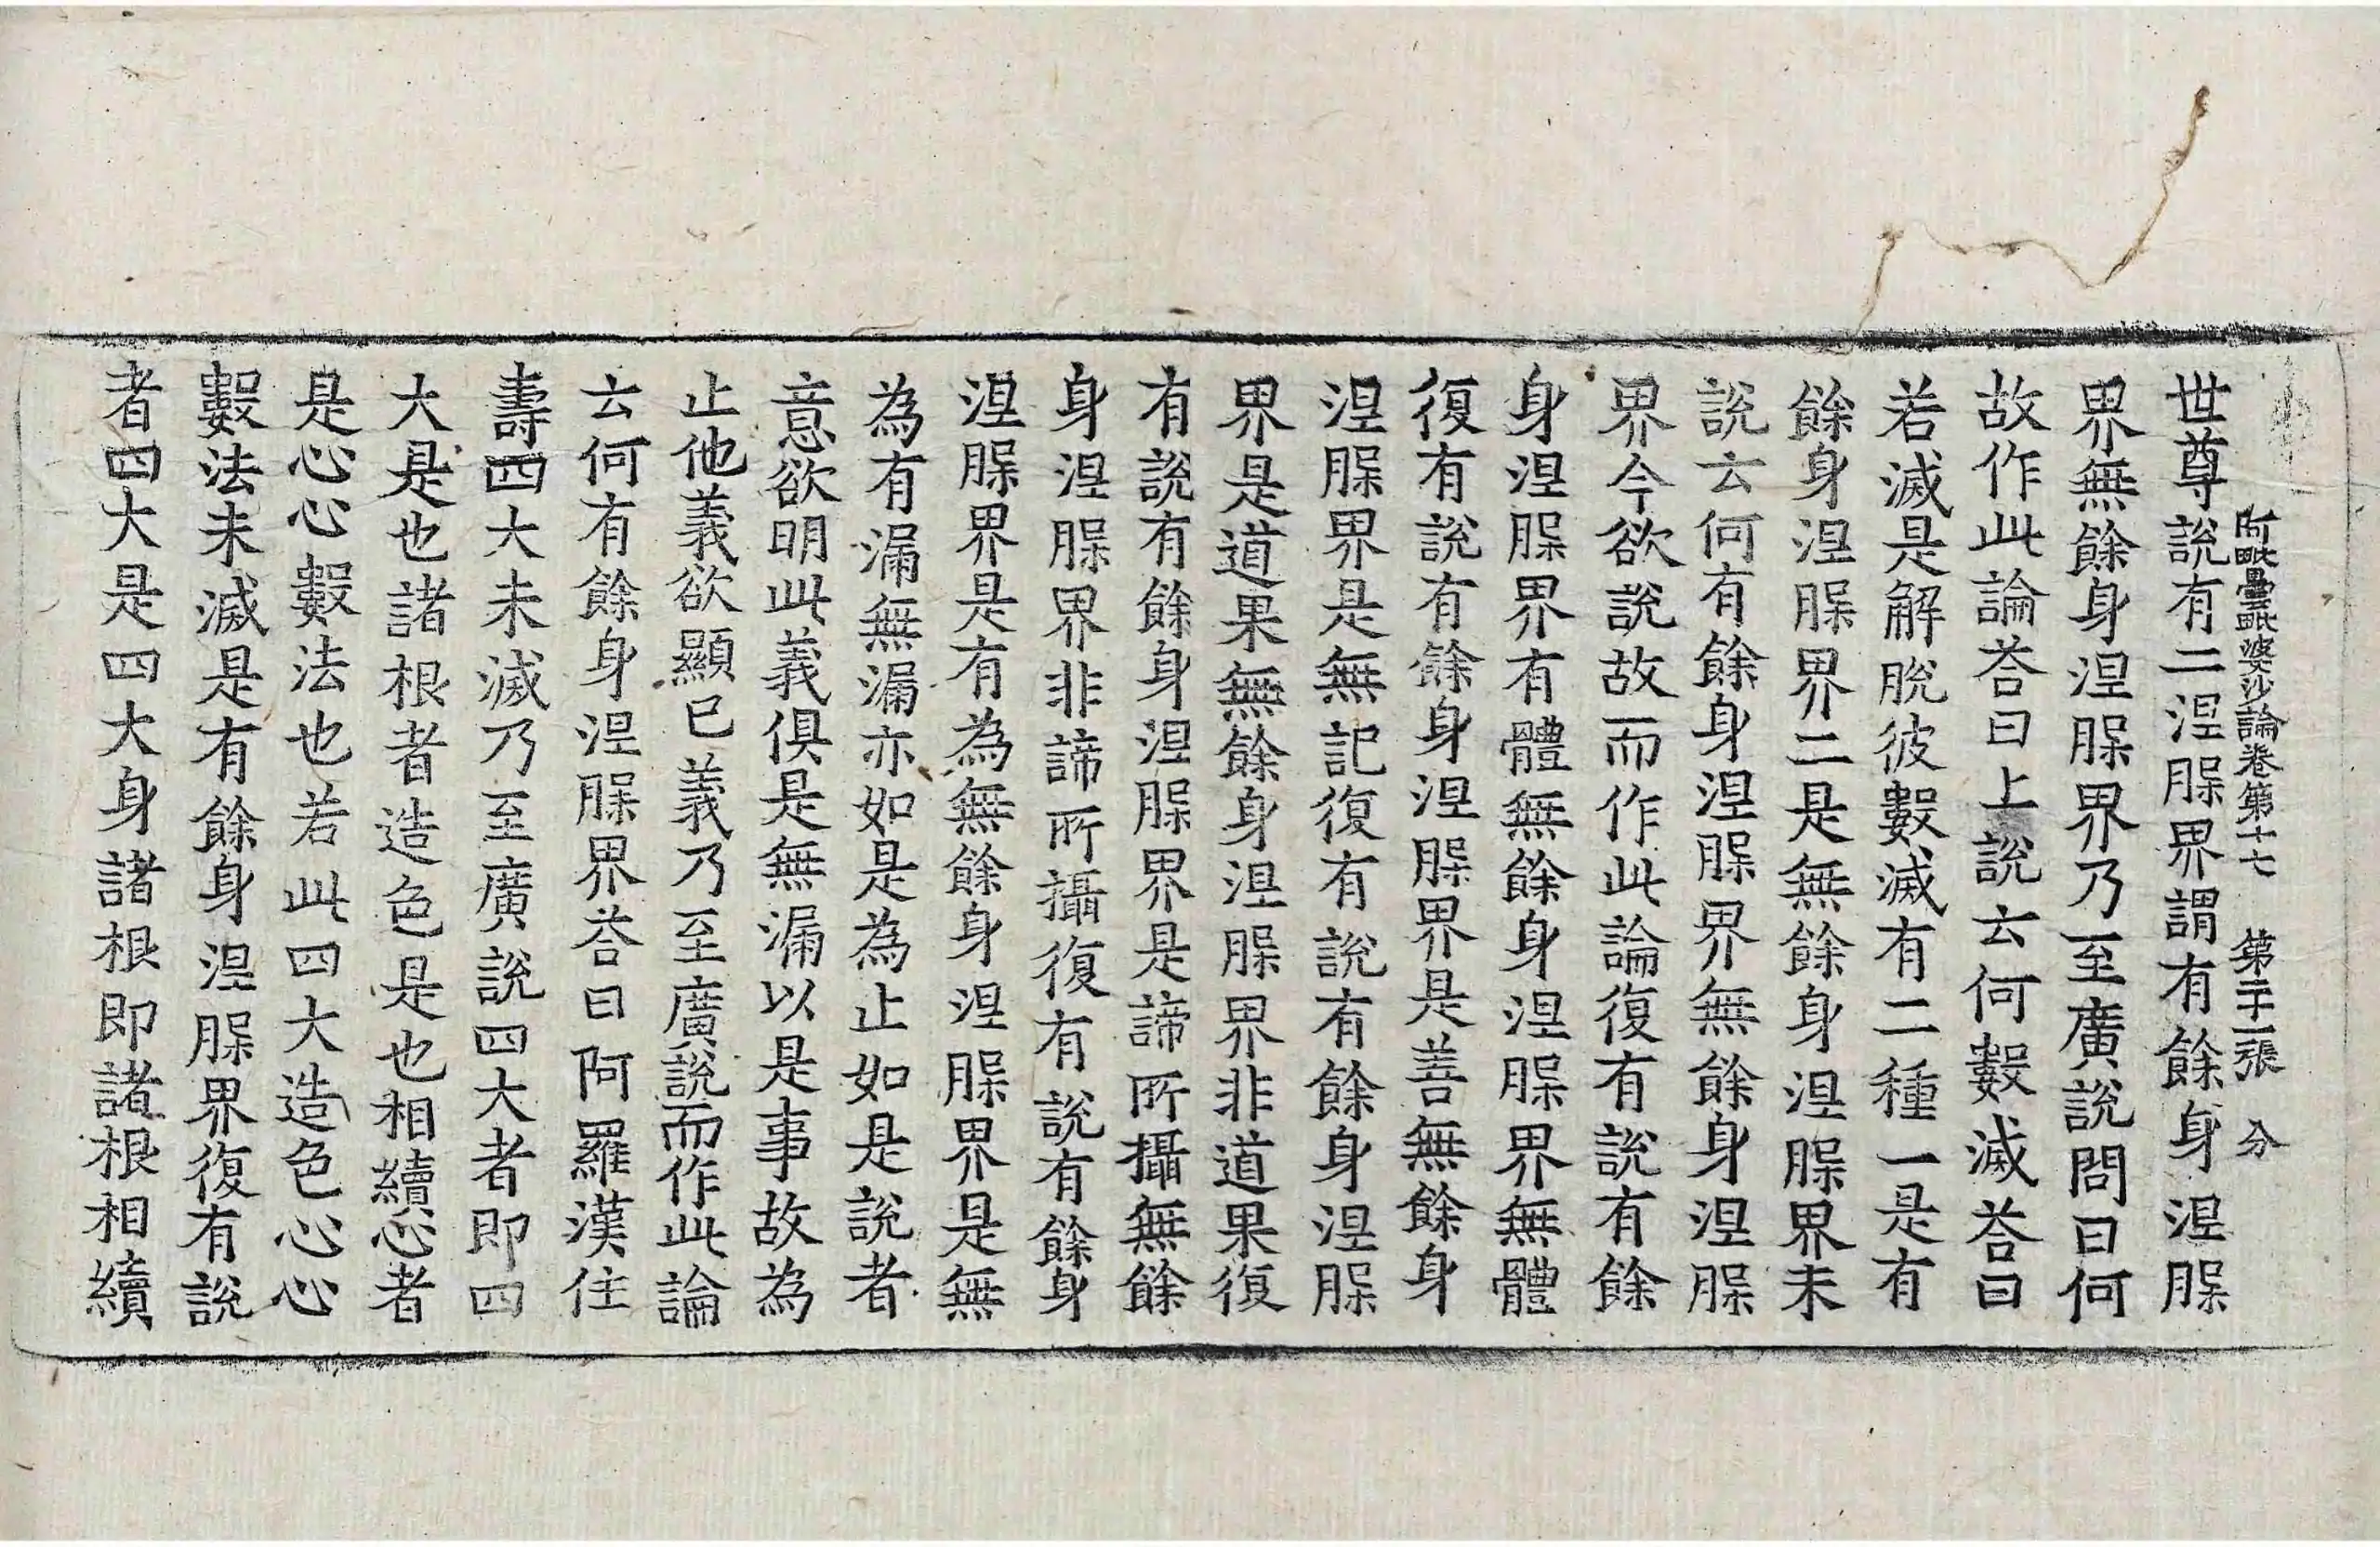 阿毗曇毗婆沙論卷第十七　第二十一張　分
世尊說有二涅槃界謂有餘身涅槃
界無餘身涅槃界乃至廣說問曰何
故作此論荅曰上說云何數滅荅曰
若滅是解脫彼數滅有二種一是有
餘身涅槃界二是無餘身涅槃界未
說云何有餘身涅槃界無餘身涅槃
界今欲說故而作此論復有說有餘
身涅槃界有體無餘身涅槃界無體
復有說有餘身涅槃界是善無餘身
涅槃界是無記復有說有餘身涅槃
界是道果無餘身涅槃界非道果復
有說有餘身涅槃界是諦所攝無餘
身涅槃界非諦所攝復有說有餘身
涅槃界是有為無餘身涅槃界是無
為有漏無漏亦如是為止如是說者
意欲明此義俱是無漏以是事故為
止他義欲顯已義乃至廣說而作此論
云何有餘身涅槃界荅曰阿羅漢住
壽四大未滅乃至廣說四大者即四
大是也諸根者造色是也相續心者
是心心數法也若此四大造色心心
數法未滅是有餘身涅槃界復有說
者四大是四大身諸根即諸根相續